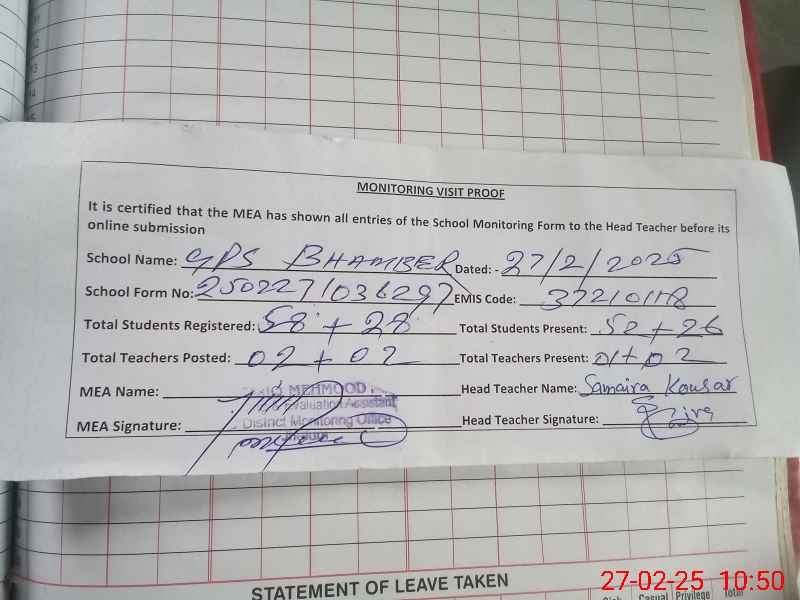 MONITORING VISIT PROOF
It is certified that the MEA has shown all entries of the School Monitoring Form to the Head Teacher before its
online submission
School Name: GPS BHAMBER Dated: - 27/2/2025
School Form No: 2502271036297 EMIS Code: 37210118
Total Students Registered: 58 + 28 Total Students Present: 52 + 26
Total Teachers Posted: 02 + 02 Total Teachers Present: 01 + 02
MEA Name: MEHMOOD Head Teacher Name: Samaira Kousar
Evaluation Assistant
MEA Signature: District Monitoring Office Head Teacher Signature:
STATEMENT OF LEAVE TAKEN
Casual Privilege Total
27-02-25 10:50